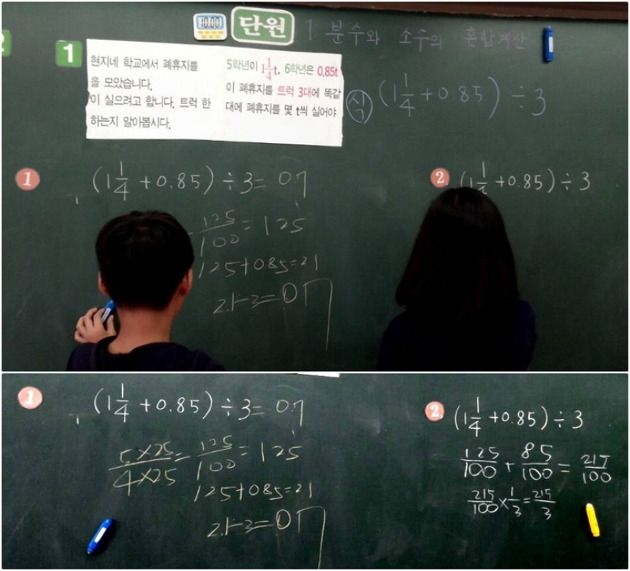 2
단원
1 분수와 소수의 혼합계산
1
현지네 학교에서 폐휴지를
을 모았습니다.
이 실으려고 합니다. 트럭 한
하는지 알아봅시다.
5학년이 1 1/4 t, 6학년은 0.85t
이 폐휴지를 트럭 3대에 똑같
대에 폐휴지를 몇 t씩 실어야
식 (1 1/4 + 0.85) ÷ 3
1
(1 1/4 + 0.85) ÷ 3 = 0.7
125/100 = 1.25
1.25 + 0.85 = 2.1
2.1 ÷ 3 = 0.7
2
(1 1/4 + 0.85) ÷ 3
1
(1 1/4 + 0.85) ÷ 3 = 0.7
5×25/4×25 = 125/100 = 1.25
1.25 + 0.85 = 2.1
2.1 ÷ 3 = 0.7
2
(1 1/4 + 0.85) ÷ 3
125/100 + 85/100 = 215/100
215/100 × 1/3 = 215/3